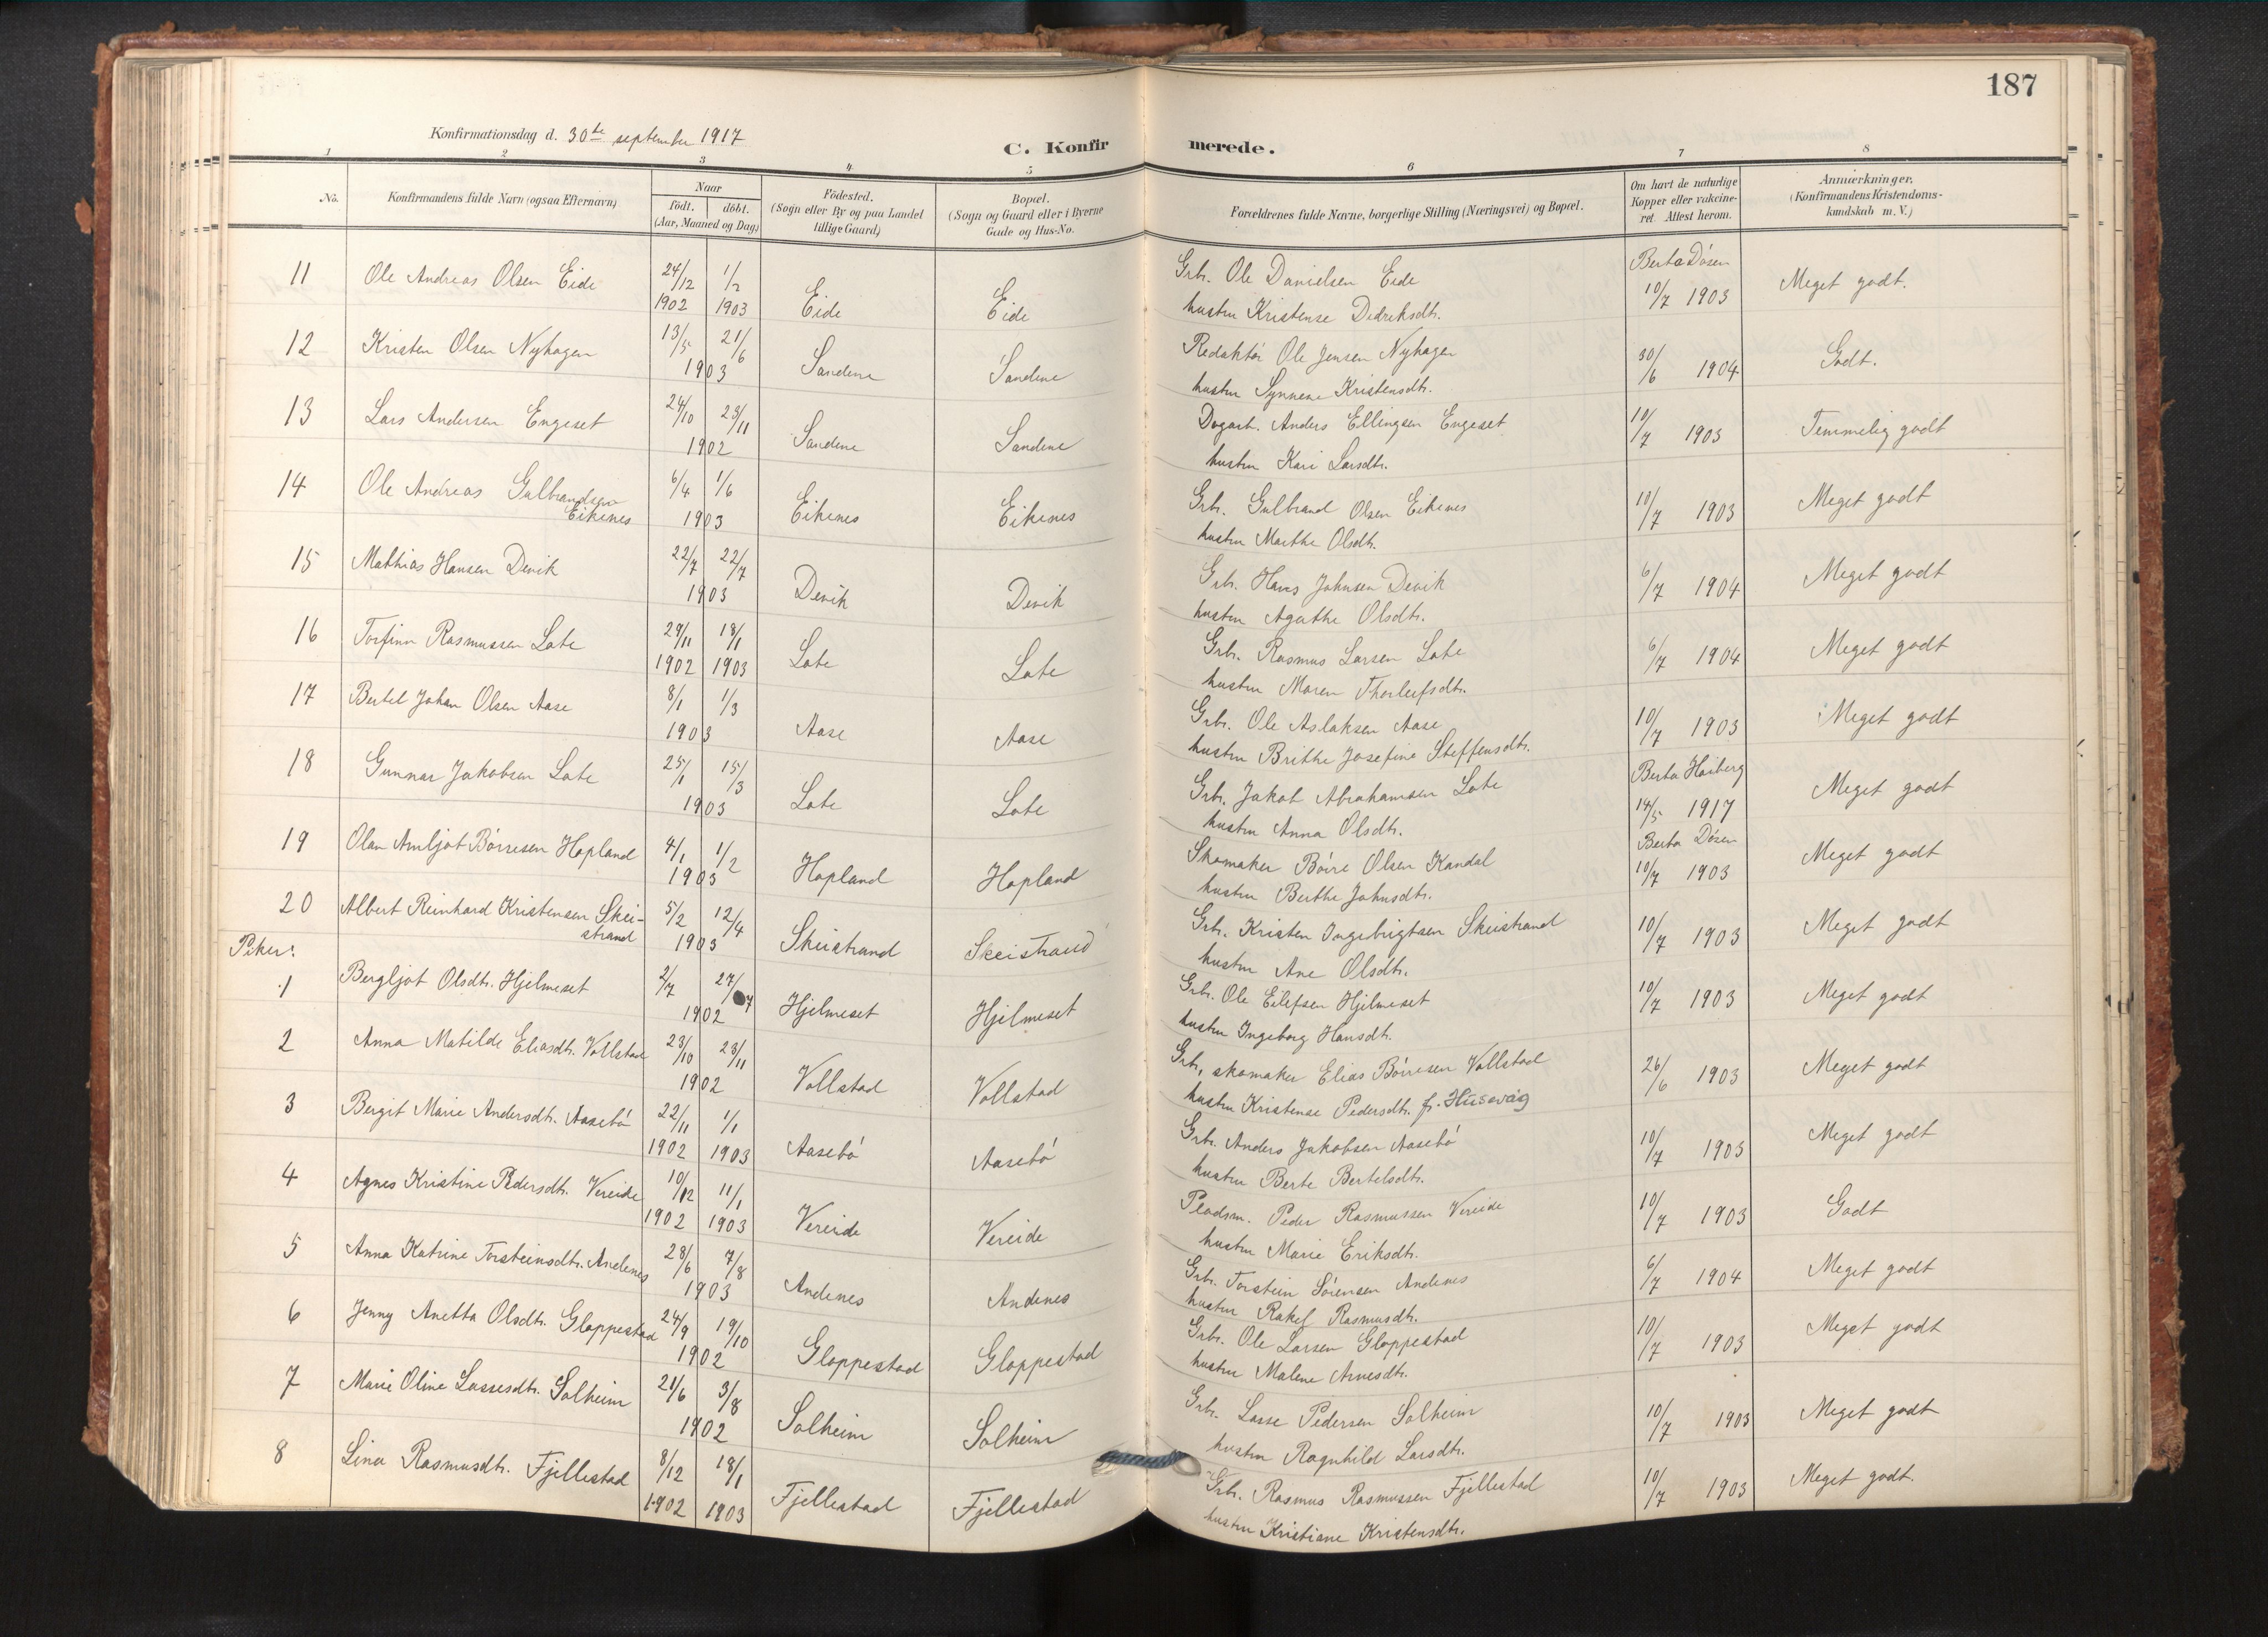 187
Konfirmationsdag d. 30te september 1917
C. Konfirmerede.
1 2 3 4 5 6 7 8
No.
Konfirmandens fulde Navn (ogsaa Efternavn)
Naar
født. døbt.
(Aar, Maaned og Dag)
Födested.
(Sogn eller By og paa Landet
tillige Gaard)
Bopæl.
(Sogn og Gaard eller i Byerne
Gade og Hus-No.
Forældrenes fulde Navne, borgerlige Stilling (Næringsvei) og Bopæl.
Om havt de naturlige
Kopper eller vakcine-
ret. Attest herom.
Anmærkninger.
(Konfirmandens Kristendoms-
kundskab m. V.)
11 Ole Andreas Olsen Eide 24/12 1902 1/2 1903 Eide Eide Grb. Ole Danielsen Eide Berta Dösen 10/7 1903 Meget godt.
hustru Kristense Didriksdtr.
12 Kristen Olsen Nyhagen 13/5 21/6 1903 Sandene Sandene Redaktör Ole Jensen Nyhagen 30/6 1904 Godt.
hustru Synneve Kristensdtr.
13 Lars Andersen Engeset 24/10 23/11 1902 Sandene Sandene Dagarb. Anders Ellingsen Engeset 10/7 1903 Temmelig godt
hustru Kari Larsdtr.
14 Ole Andreas Gulbrandsen
Eikenes 6/4 1/6 1903 Eikenes Eikenes Grb. Gulbrand Olsen Eikenes 10/7 1903 Meget godt
hustru Marthe Olsdtr.
15 Mathias Hansen Devik 22/7 22/7 1903 Devik Devik Grb. Hans Johnsen Devik 6/7 1904 Meget godt
hustru Agathe Olsdtr.
16 Torfinn Rasmussen Lote 29/11 1902 18/1 1903 Lote Lote Grb. Rasmus Larsen Lote 6/7 1904 Meget godt
hustru Maren Thorleifsdtr.
17 Bertel Johan Olsen Aase 8/1 1/3 1903 Aase Aase Grb. Ole Aslaksen Aase 10/7 1903 Meget godt
hustru Brithe Josefine Steffensdtr.
18 Gunnar Jakobsen Lote 25/1 15/3 1903 Lote Lote Grb. Jakob Abrahamsen Lote Berta Heiberg 14/5 1917 Meget godt
hustru Anna Olsdtr.
19 Olav Arnljot Börresen Hopland 4/1 1/2 1903 Hopland Hopland Skomaker Börre Olsen Kandal Berta Dösen 10/7 1903 Meget godt
hustru Berthe Johnsdtr.
20 Albert Reinhard Kristensen Skei-
strand 5/2 12/4 1903 Skeistrand Skeistrand Grb. Kristen Ingebrigtsen Skeistrand 10/7 1903 Meget godt
hustru Ane Olsdtr.
Piker:
1 Bergljot Olsdtr. Hjelmeset 2/7 27/7 1902 Hjelmeset Hjelmeset Grb. Ole Eilefsen Hjelmeset 10/7 1903 Meget godt
hustru Ingeborg Hansdtr.
2 Anna Matilde Eliasdtr. Vollstad 23/10 23/11 1902 Vollstad Vollstad Grb, skomaker Elias Börresen Vollstad 26/6 1903 Meget godt
hustru Kristense Pedersdtr. f. Husevåg
3 Bergit Marie Andersdtr. Aasebö 22/11 1902 1/1 1903 Aasebö Aasebö Grb. Anders Jakobsen Aasebö 10/7 1903 Meget godt
hustru Berte Bertelsdtr.
4 Agnes Kristine Pedersdtr. Vereide 10/12 1902 11/1 1903 Vereide Vereide Pladsm. Peder Rasmussen Vereide 10/7 1903 Godt
hustru Marie Eriksdtr.
5 Anna Katrine Torsteinsdtr. Andenes 28/6 7/8 1903 Andenes Andenes Grb. Torstein Sörensen Andenes 6/7 1904 Meget godt
hustru Rakel Rasmusdtr.
6 Jenny Anetta Olsdtr. Gloppestad 24/9 19/10 1902 Gloppestad Gloppestad Grb. Ole Larsen Gloppestad 10/7 1903 Meget godt
hustru Malene Arnesdtr.
7 Marie Oline Lassesdtr. Solheim 21/6 3/8 1902 Solheim Solheim Grb. Lasse Pedersen Solheim 10/7 1903 Meget godt
hustru Ragnhild Larsdtr.
8 Lina Rasmusdtr. Fjellestad 8/12 1902 18/1 1903 Fjellestad Fjellestad Grb. Rasmus Rasmussen Fjellestad 10/7 1903 Meget godt.
hustru Kristiane Kristensdtr.